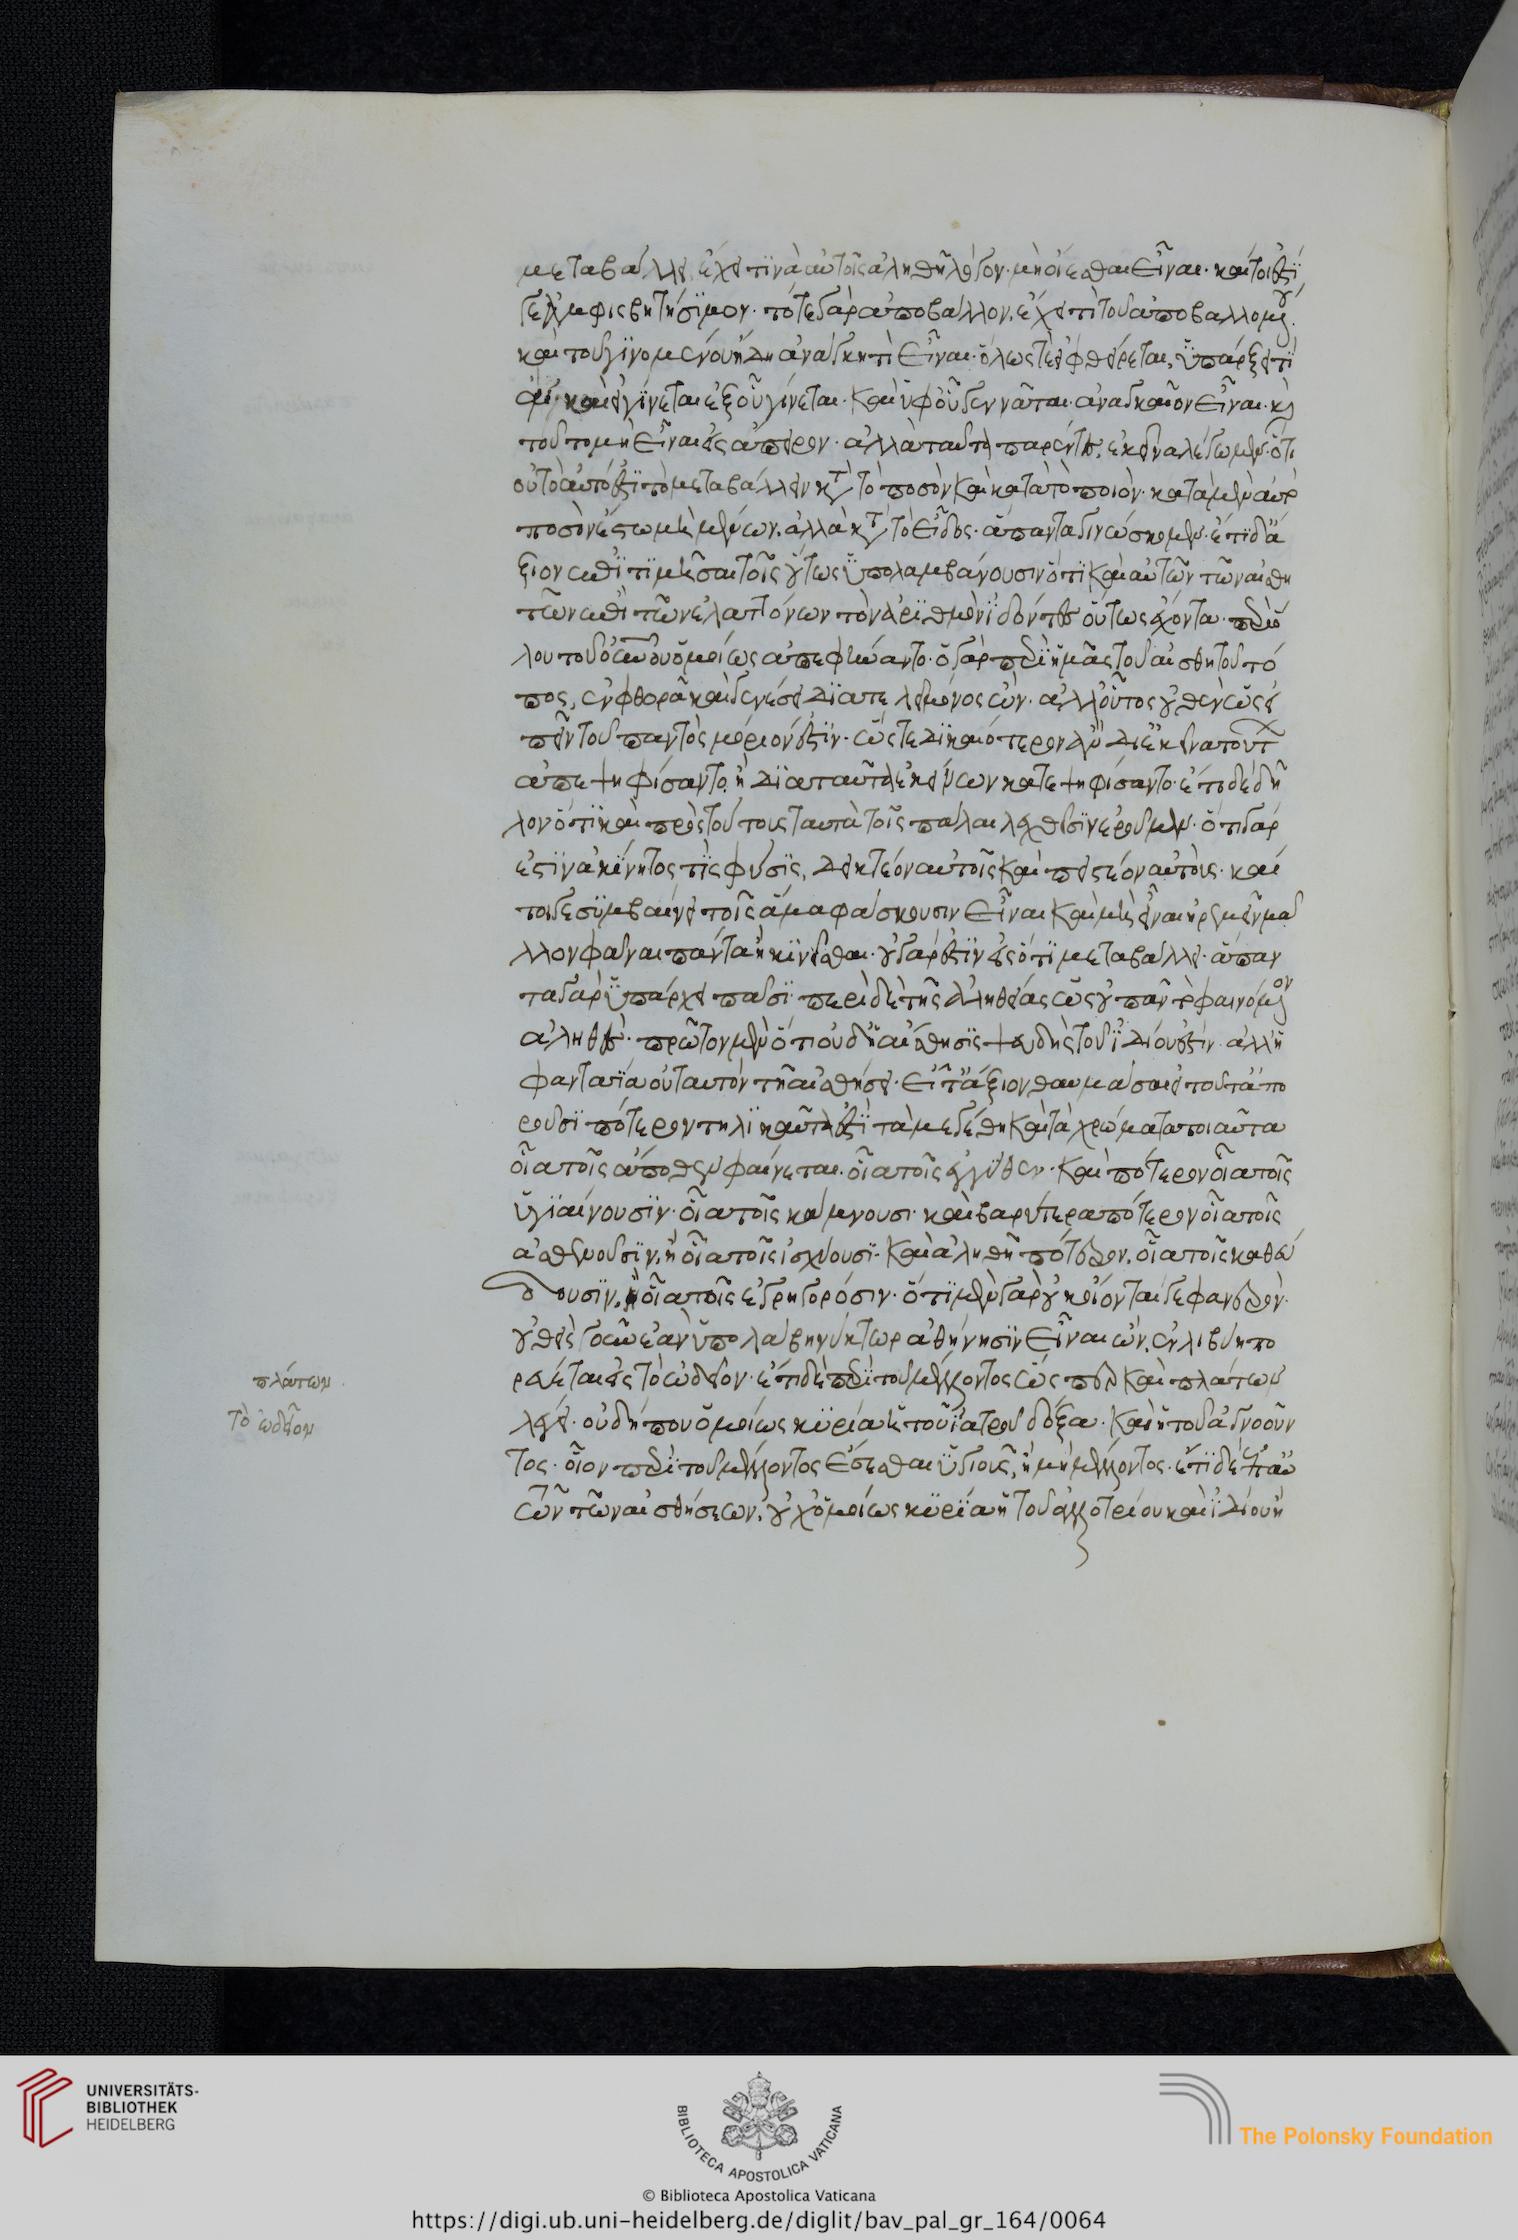 μεταβάλλει ἔχει τινὰ αὐτοῖς ἀληθῆ λόγον· μὴ οἴεσθαι εἶναι· καίτοι ἐστί
γε ἀμφισβητήσιμον· τό τε γὰρ ἀποβάλλον, ἔχει τὶ τοῦ ἀποβαλλομένου,
καὶ τοῦ γινομένου ἤδη ἀνάγκη τὶ εἶναι· ὅλως τε εἰ φθείρεται, ὑπάρξει τὶ
ὄν, καὶ εἰ γίνεται ἐξ οὗ γίνεται· καὶ ὑφ' οὗ γεννᾶται· ἀναγκαῖον εἶναι· καὶ
τοῦτο μὴ εἶναι εἰς ἄπειρον· ἀλλὰ ταῦτα παρέντες, ἐκεῖνα λέγωμεν· ὅτι
οὐ τὸ αὐτό ἐστι τὸ μεταβάλλειν κατὰ τὸ ποσὸν καὶ κατὰ τὸ ποιόν· κατὰ μὲν οὖν τὸ
ποσὸν ἔστω μὴ μένον. ἀλλὰ κατὰ τὸ εἶδος· ἅπαντα γινώσκομεν· ἔτι δ' ἄ
ξιον ἐπιτιμῆσαι τοῖς οὕτως ὑπολαμβάνουσιν ὅτι καὶ αὐτῶν τῶν αἰσθη
τῶν ἐπὶ τῶν ἐλαττόνων τὸν ἀριθμὸν ἰδόντες οὕτως ἔχοντα· περὶ ὅ
λου τοῦ οὐρανοῦ ὁμοίως ἀπεφήναντο· ὁ γὰρ περὶ ἡμᾶς τοῦ αἰσθητοῦ τό
πος, ἐν φθορᾷ καὶ γενέσει διατελεῖ μόνος ὤν· ἀλλ' οὗτος οὐθὲν ὡς εἰ
πεῖν τοῦ παντὸς μόριόν ἐστιν· ὥστε δικαιότερον ἂν δι' ἐκεῖνα τούτων
ἀπεψηφίσαντο, ἢ διὰ ταῦτα ἐκείνων κατεψηφίσαντο· ἔτι δὲ δῆ
λον ὅτι καὶ πρὸς τούτους ταυτὰ τοῖς πάλαι λεχθεῖσιν ἐροῦμεν· ὅτι γάρ
ἐστιν ἀκίνητός τις φύσις, δεικτέον αὐτοῖς καὶ πειστέον αὐτούς· καί
τοι γε συμβαίνει τοῖς ἅμα φάσκουσιν εἶναι καὶ μὴ εἶναι ἠρεμεῖν μᾶ
λλον φάναι πάντα ἢ κινεῖσθαι· οὐ γάρ ἐστιν εἰς ὅτι μεταβάλλει· ἅπαν
τα γὰρ ὑπάρχει πᾶσι· περὶ δὲ τῆς ἀληθείας ὡς οὐ πᾶν τὸ φαινόμενον
ἀληθές· πρῶτον μὲν ὅτι οὐδ' ἡ αἴσθησις ψευδὴς τοῦ ἰδίου ἐστίν· ἀλλ' ἡ
φαντασία οὐ ταυτὸν τῇ αἰσθήσει· εἶτ' ἄξιον θαυμάσαι εἰ τοῦτ' ἀπο
ροῦσι πότερον τηλικαῦτά ἐστι τὰ μεγέθη καὶ τὰ χρώματα τοιαῦτα
οἷα τοῖς ἄποθεν φαίνεται. οἷα τοῖς ἐγγύθεν· καὶ πότερον οἷα τοῖς
ὑγιαίνουσιν· οἷα τοῖς κάμνουσι· καὶ βαρύτερα πότερον οἷα τοῖς
ἀσθενοῦσιν, ἢ οἷα τοῖς ἰσχύουσι· καὶ ἀληθῆ πότερον, οἷα τοῖς καθεύ
δουσιν, ἢ οἷα τοῖς ἐγρηγορόσιν· ὅτι μὲν γὰρ οὐκ οἴονταί γε φανερόν·
οὐθεὶς γοῦν ἐὰν ὑπολάβῃ νύκτωρ ἀθήνησιν εἶναι ὤν, ἐν λιβύῃ πο
ρεύεται εἰς τὸ ὠδεῖον· ἔτι δὲ περὶ τοῦ μέλλοντος ὥσπερ καὶ πλάτων
λέγει· οὐ δήπου ὁμοίως κυρία ἡ τοῦ ἰατροῦ δόξα· καὶ ἡ τοῦ ἀγνοοῦν
τος· οἷον περὶ τοῦ μέλλοντος ἔσεσθαι ὑγιοῦς, ἢ μὴ μέλλοντος· ἔτι δὲ ἐπ' αὐ
τῶν τῶν αἰσθήσεων, οὐχ ὁμοίως κυρία ἡ τοῦ ἀλλοτρίου καὶ ἰδίου ἢ
πλάτων
τὸ ὠδεῖον
UNIVERSITÄTS-
BIBLIOTHEK
HEIDELBERG
BIBLIOTECA APOSTOLICA VATICANA
© Biblioteca Apostolica Vaticana
The Polonsky Foundation
https://digi.ub.uni-heidelberg.de/diglit/bav_pal_gr_164/0064